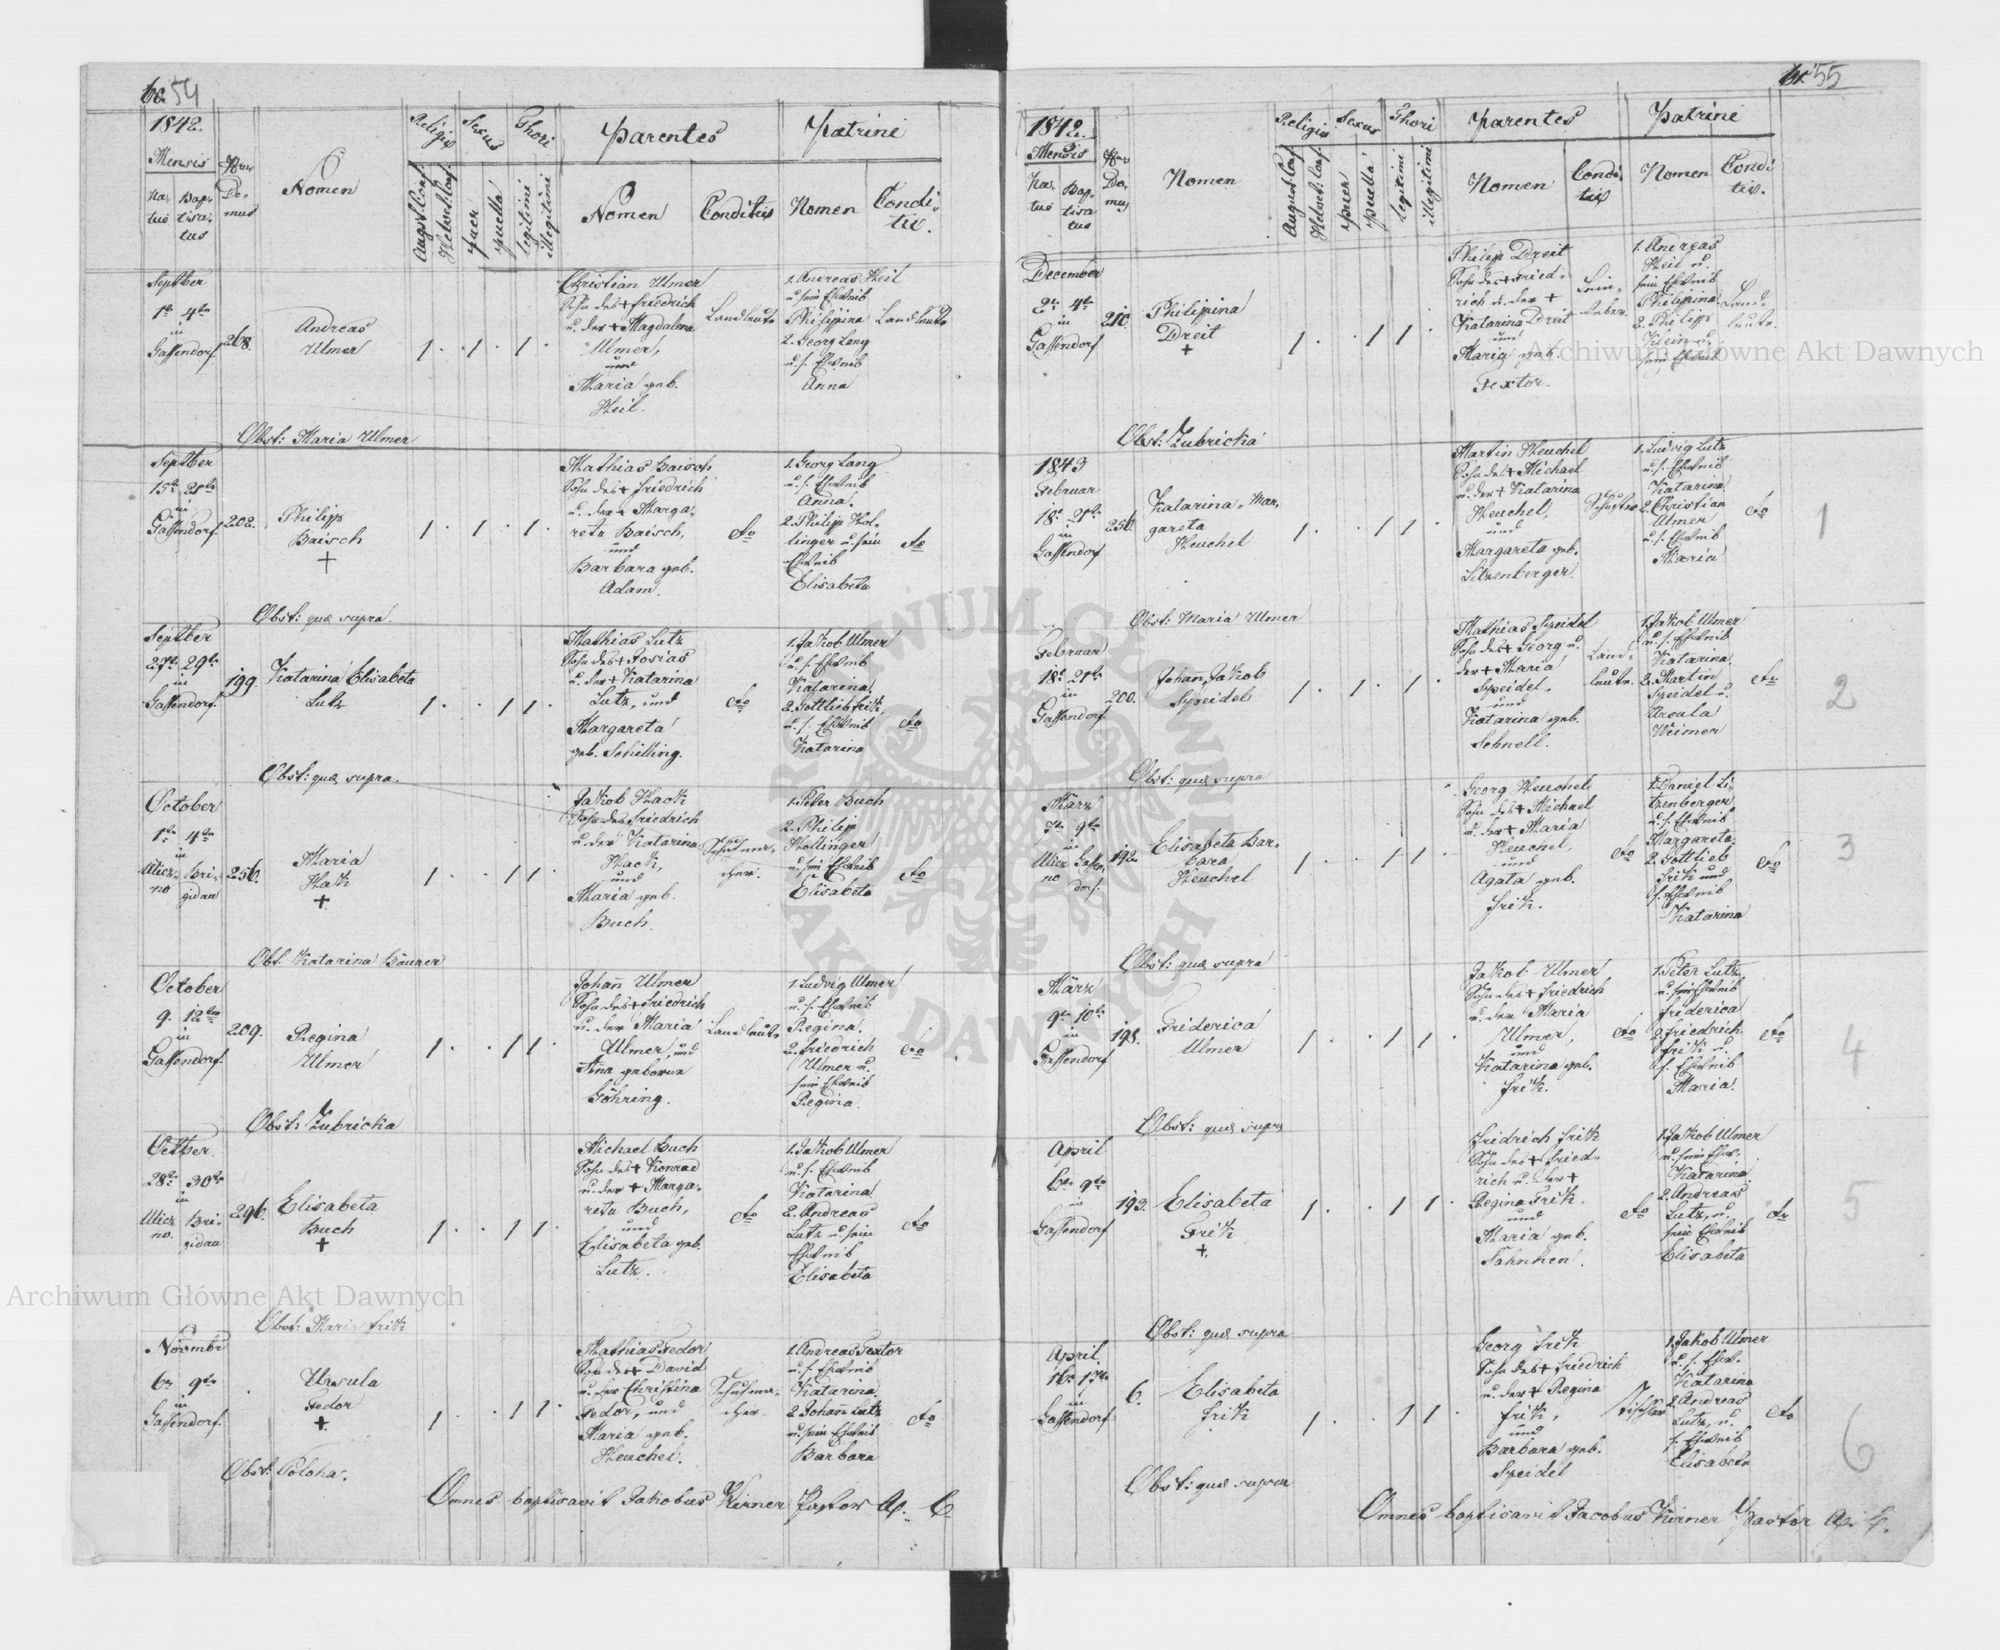 60. 54
1842.
Mensis
Na-
tus
Bap-
tisa-
tus
Nrus
Do-
mus
Nomen
Religio
Augst. Conf.
Helvet. Conf.
Sexus
puer
puella
Thori
legitimi
illegitimi
Parentes
Nomen
Conditio
Patrini
Nomen
Condi-
tio.
Septber
1te 4te
in
Gassendorf
268.
Andreas
Ulmer
1. 1. 1.
Christian Ulmer
Sohn des + Friedrich
u. der + Magdalena
Ulmer,
und
Maria geb.
Heil.
Landleute
1. Andreas Heil
u. sein Eheweib
Philippina
2. Georg Lang
u. s. Eheweib
Anna
Landleute
Obst: Maria Ulmer
Septber
15te 21te
in
Gassendorf
202.
Philip
Baisch
+
1. 1. 1.
Mathias Baisch
Sohn des + Friedrich
u. der + Marga-
reta Baisch,
und
Barbara geb.
Adam.
dto
1. Georg Lang
u. s. Eheweib
Anna.
2. Philip Hol-
linger u. sein
Eheweib
Elisabeta
dto
Obst: quæ supra.
Septber
27te 29te
in
Gassendorf
199.
Katarina Elisabeta
Lutz
1. . 1 1.
Mathias Lutz
Sohn des + Josias
u. der + Katarina
Lutz, und
Margareta
geb. Schilling.
dto
1. Jakob Ulmer
u. s. Eheweib
Katarina.
2. Gottlieb Fritz,
u. s. Eheweib
Katarina
dto
Obst: quæ supra.
October
1te 4te
in
Ulicz- Bri-
no gidau
256.
Maria
Hack
+
1. . 1 1.
Jakob Hack
Sohn des Friedrich
u. der Katarina
Hack,
und
Maria geb.
Buch.
Schuhma-
cher.
1. Peter Buch
2. Philip
Hollinger
u. sein Eheweib
Elisabeta
dto
Obst. Katarina Bäurer
October
9. 12ten
in
Gassendorf.
209.
Regina
Ulmer
1. . 1 1.
Johañ Ulmer
Sohn des + Friedrich
u. der Maria
Ulmer, und
Ana geborne
Göhring.
Landleute
1. Ludvig Ulmer
u. s. Eheweib
Regina.
2. Friedrich
Ulmer u.
sein Eheweib
Regina.
dto
Obst: Zubricka
Octber.
28te 30te
in
Ulicz Bri-
no. gidau
296.
Elisabeta
Buch
+
1. . 1 1.
Michael Buch
Sohn des + Konrad
u. der + Marga-
reta Buch,
und
Elisabeta geb.
Lutz.
dto
1. Jakob Ulmer
u. s. Eheweib
Katarina
2. Andreas
Lutz u. sein
Eheweib
Elisabeta
dto
Obst: Maria Fritz
Novmbr
6te 9te
in
Gassendorf.
Ursula
Fedor
+
1. . 1 1.
Mathias Fedor
Sohn des + David
u. der Christina
Fedor, und
Maria geb.
Heuchel.
Schuhma-
cher
1. Andreas Textor
u. s. Eheweib
Katarina.
2. Johañ Lutz
u. sein Eheweib
Barbara
dto
Obst: Poloha.
Omnes baptisavit Jakobus Kirner Pastor A. C.
61. 55
1842.
Mensis
Na-
tus
Bap-
tisa-
tus
Nrus
Do-
mus
Nomen
Religio
August. Conf.
Helvet. Conf.
Sexus
puer
puella
Thori
legitimi
illegitimi
Parentes
Nomen
Condi-
tio
Patrini
Nomen
Condi-
tio.
December
2te 4te
in
Gassendorf
210.
Philippina
Dreit
+
1. . 1 1.
Philip Dreit
Sohn des + Fried-
rich u. der +
Katarina Dreit
und
Maria geb.
Textor.
Lein-
weber.
1. Andreas
Heil u.
sein Eheweib
Philippina
2. Philipp
Klein u.
sein Eheweib
Land-
leute.
Obst: Zubricka
1843
Februar
18te 21te
in
Gassendorf
256.
Katarina Mar-
gareta
Heuchel
1. . 1 1.
Martin Heuchel
Sohn des + Michael
u. der + Katarina
Heuchel,
und
Margareta geb.
Litzenberger.
Schuster
1. Ludvig Lutz
u. s. Eheweib
Katarina.
2. Christian
Ulmer
u. s. Eheweib
Maria
dto
1
Obst: Maria Ulmer
Februar
18te 21te
in
Gassendorf.
200.
Johañ Jakob
Speidel
1. 1. 1.
Mathias Speidel
Sohn des + Georg u.
der + Maria
Speidel,
und
Katarina geb.
Schnell.
Land-
leute.
1. Jakob Ulmer
u. s. Eheweib
Katarina.
2. Martin
Speidel u.
Ursula
Weimer
dto
2
Obst: quæ supra
März
7te 9te
in
Ulicz- Gassen-
no dorf.
192.
Elisabeta Bar-
bara
Heuchel
1. . 1 1.
Georg Heuchel
Sohn des + Michael
u. der + Maria
Heuchel,
und
Agata geb.
Fritz.
dto
1. Daniel Li-
tzenberger
u. s. Eheweib
Margareta.
2. Gottlieb
Fritz und
s. Eheweib
Katarina
dto
3
Obst: quæ supra
März
9te 10te
in
Gassendorf
198.
Friderica
Ulmer
1. . 1 1.
Jakob Ulmer
Sohn des + Friedrich
u. der Maria
Ulmer,
und
Katarina geb.
Fritz.
dto
1. Peter Lutz,
u. sein Eheweib
Friderica
2. Friedrich
Fritz u.
s. Eheweib
Maria.
dto
4
Obst: quæ supra
April
6te 9te
in
Gassendorf
193.
Elisabeta
Fritz
+
1. . 1 1.
Fridrich Fritz
Sohn des + Fried-
rich u. der +
Regina Fritz.
und
Maria geb.
Fahnken.
dto
1. Jakob Ulmer
u. sein Ehew.
Katarina
2. Andreas
Lutz, u.
sein Eheweib
Elisabeta
dto
5
Obst: quæ supra
April.
16te 17te
in
Gassendorf
6.
Elisabeta
Fritz
1. . 1 1.
Georg Fritz
Sohn des + Friedrich
u. der + Regina
Fritz,
und
Barbara geb.
Speidel
Tischler
1. Jakob Ulmer
u. s. Ehew.
Katarina
2. Andreas
Lutz, u.
s. Eheweib
Elisabeta
dto
6
Obst: quæ supra
Omnes baptisavit Jacobus Kirner Pastor A. C.
Archiwum Główne Akt Dawnych
Archiwum Główne Akt Dawnych
ARCHIWUM GŁÓWNE AKT DAWNYCH